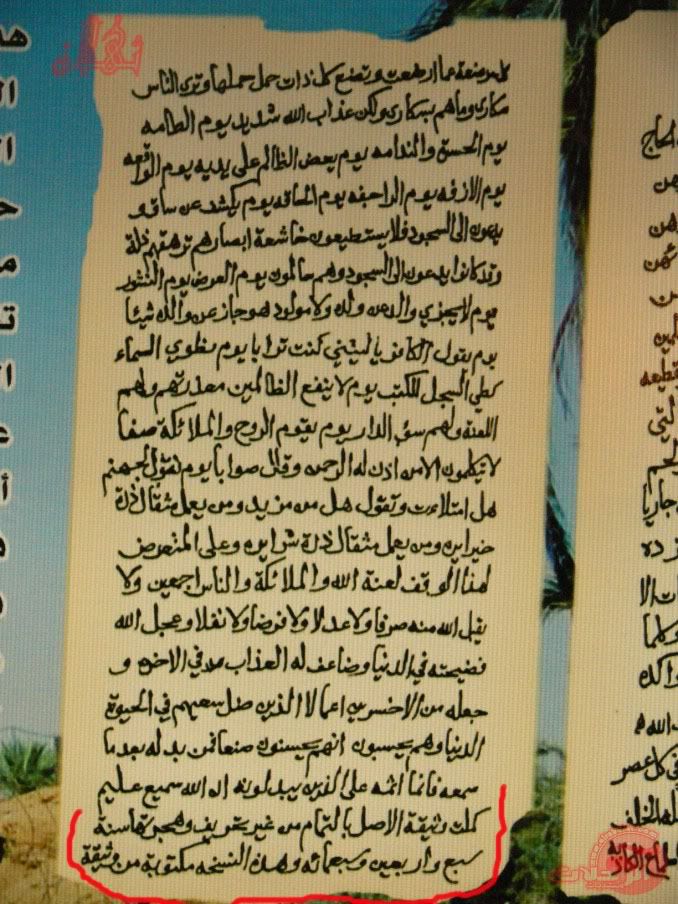 كل مرضعة عما ارضعت وتضع كل ذات حمل حملها وترى الناس
سكارى وما هم بسكارى ولكن عذاب الله شديد يوم الطامه
يوم الحسرة والندامه يوم يعض الظالم على يديه يوم الواقعه
يوم الازفه يوم الراجفه يوم الحاقه يوم يكشف عن ساق و
يدعون الى السجود فلا يستطيعون خاشعة ابصارهم ترهقهم ذلة
وقد كانوا يدعون الى السجود وهم سالمون يوم العرض يوم النشور
يوم لا يجزي والد عن ولده ولا مولود هو جاز عن والده شيئا
يوم يقول الكافر يا ليتني كنت ترابا يوم نطوي السماء
كطي السجل للكتب يوم لا ينفع الظالمين معذرتهم ولهم
اللعنة ولهم سوء الدار يوم يقوم الروح والملائكة صفا
لا يتكلمون الا من اذن له الرحمن وقال صوابا يوم نقول لجهنم
هل امتلاءت وتقول هل من مزيد ومن يعمل مثقال ذرة
خيرا يره ومن يعمل مثقال ذرة شرا يره وعلى المتعرض
لهذا الوقف لعنة الله والملائكة والناس اجمعين ولا
يقبل الله منه صرفا ولا عدلا ولا فرضا ولا نفلا وعجل الله
فضيحته في الدنيا وضاعف له العذاب في الاخره و
جعله من الاخسرين اعمالا الذين ضل سعيهم في الحيوة
الدنيا وهم يحسبون انهم يحسنون صنعا فمن بدله بعد ما
سمعه فانما اثمه على الذين يبدلونه ان الله سميع عليم
كملت وثيقة الاصل بالتمام من غير تحريف وهجرتها سنة
سبع واربعين وسبعمائه وهذه النسخه مكتوبة من وثيقة
الحاج
التي
جاريا
وكلما
الله
في كل عصر
الخلف